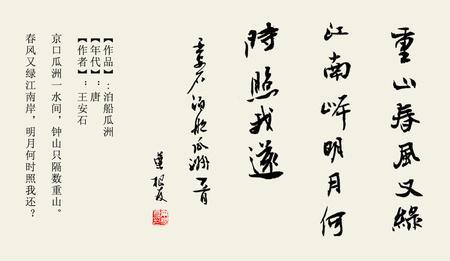 重山春風又綠
江南岸明月何
時照我還
王安石泊船瓜洲一首
【作品】:泊船瓜洲
【年代】:唐
【作者】:王安石
京口瓜洲一水间，钟山只隔数重山。
春风又绿江南岸，明月何时照我还？